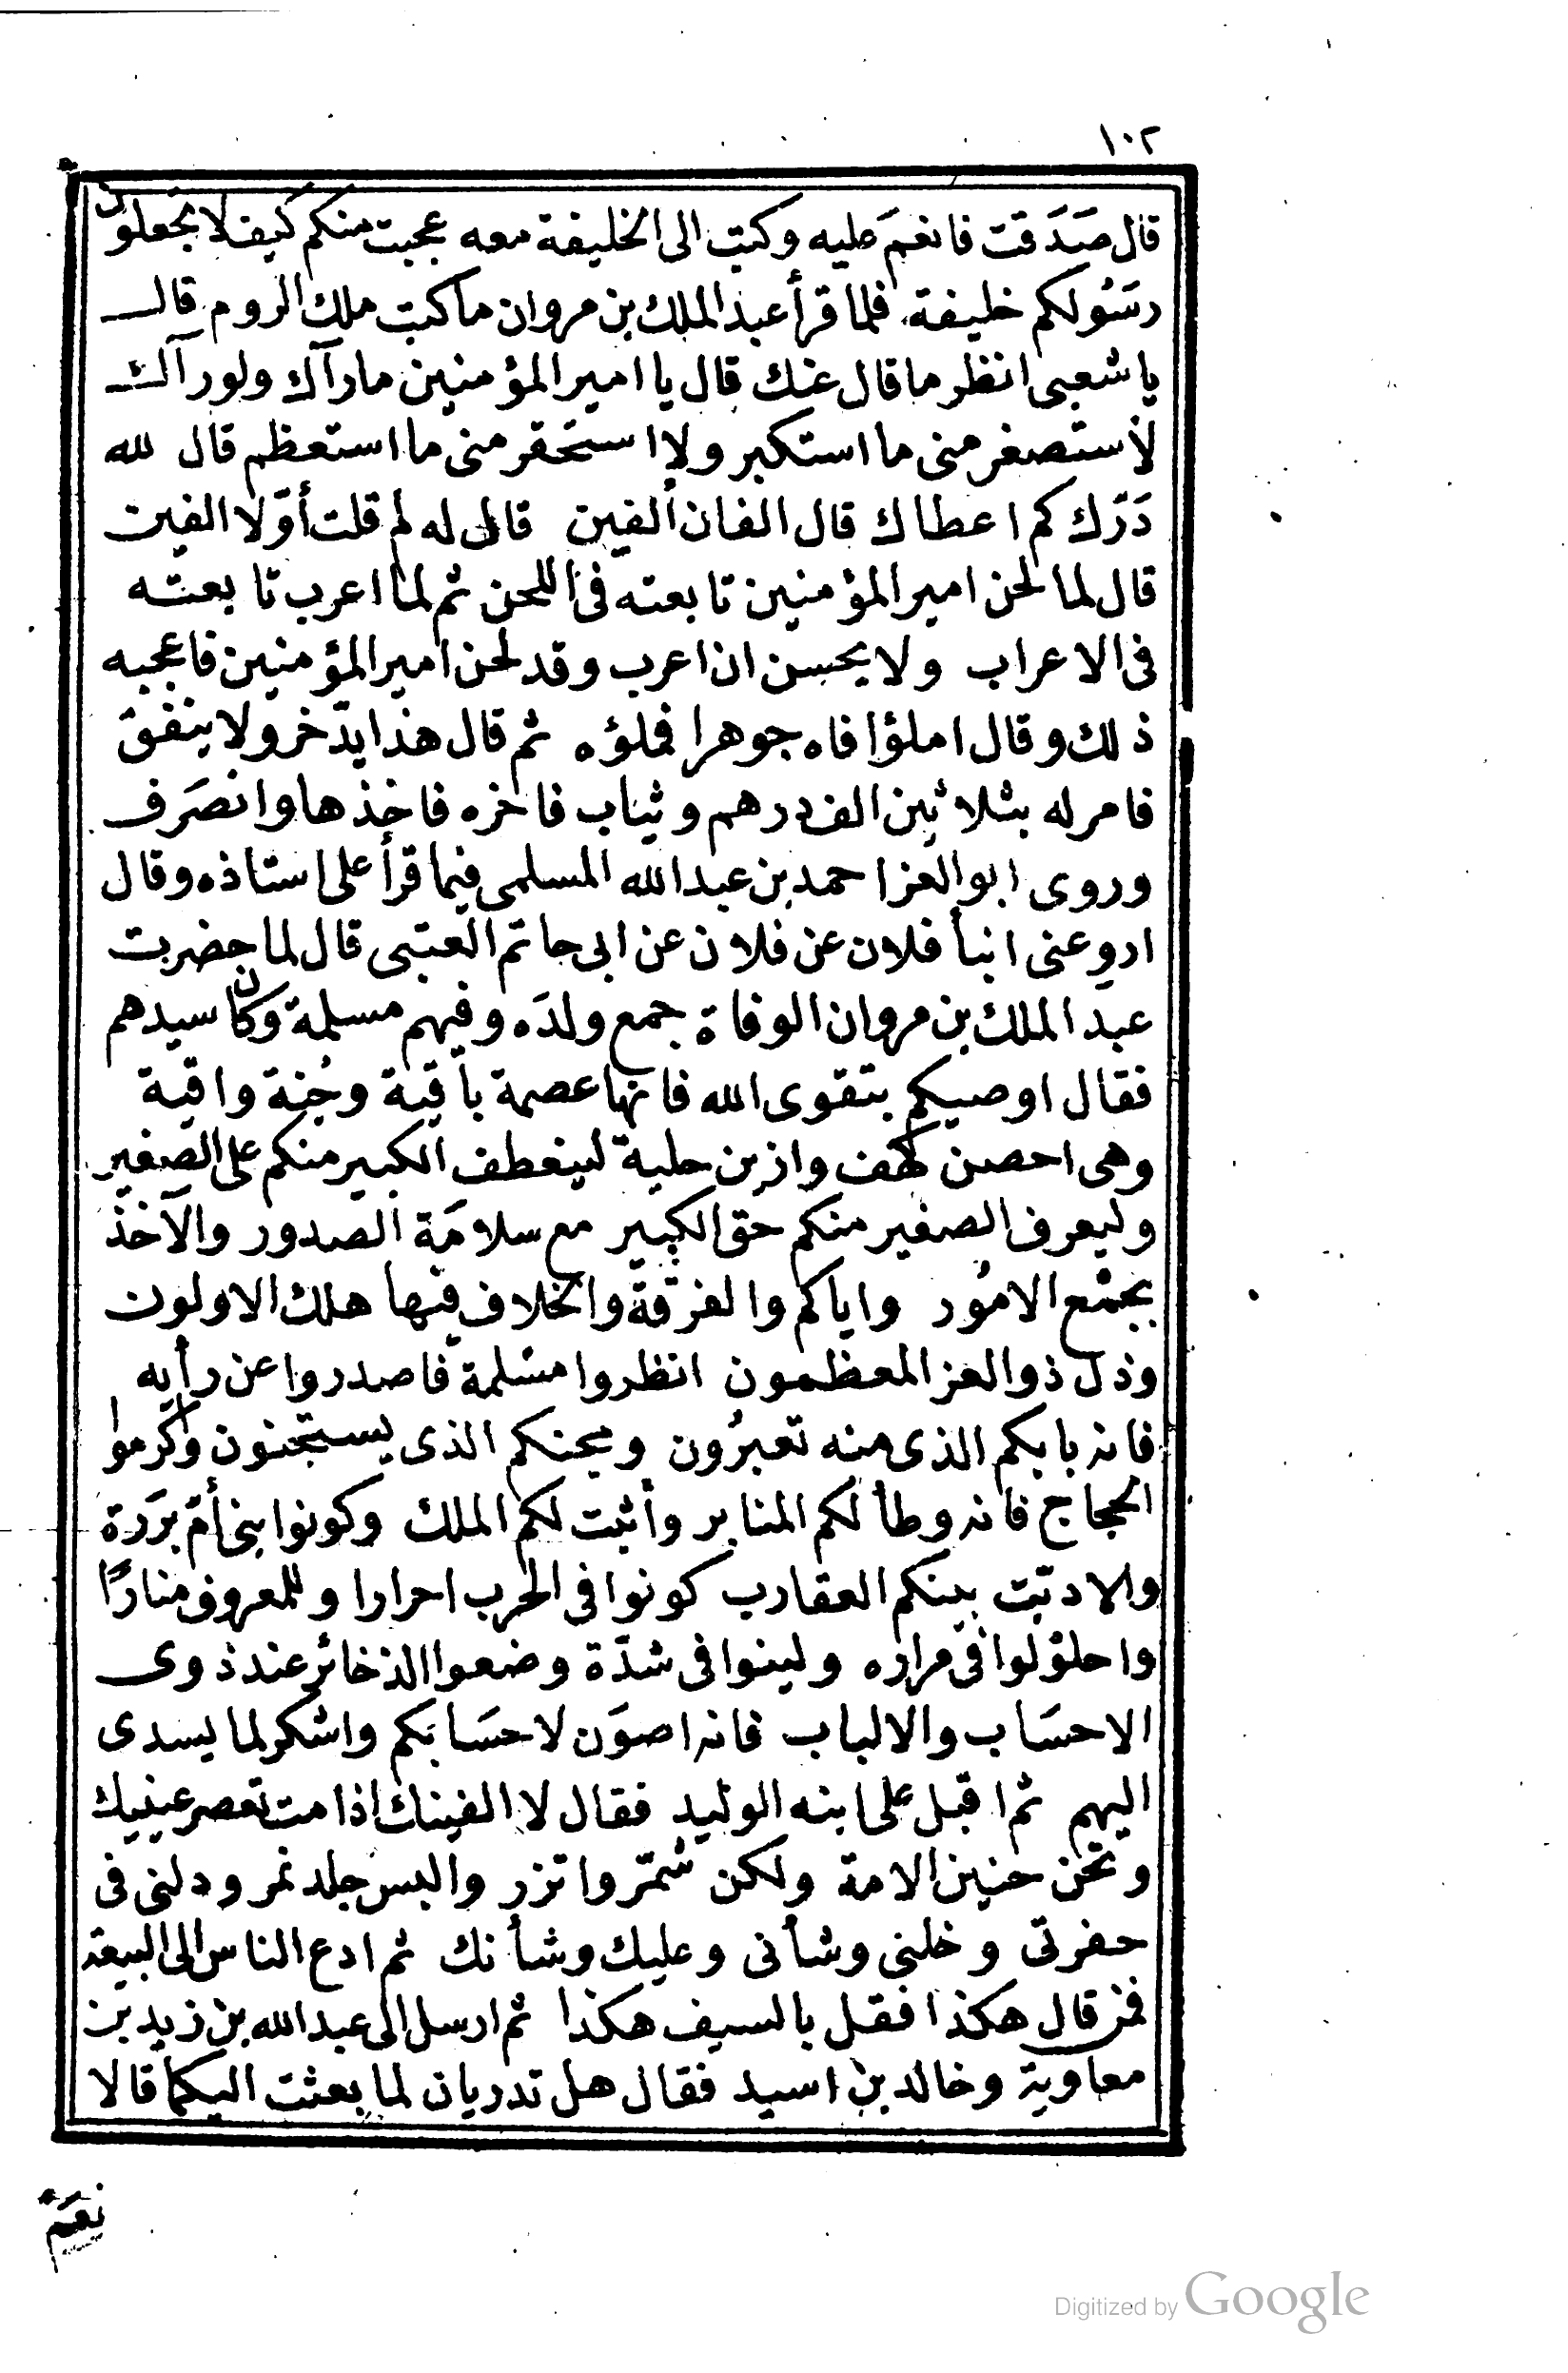 ١٠٢
قال صَدَقت فانعَم عليه وكتب الى الخليفة معه عجبت منكم كيف لا تجعلون
رسَولكم خليفة فلما قرأ عبد الملك بن مروان ما كتب ملك الروم قال
يا شعبى انظر ما قال عنك قال يا امير المؤمنين ما رآك ولو رآك
لأستصغر منى ما استكبر ولا استحقر منى ما استعظم قال لله
دَرّك كم اعطاك قال الفان ألفين قال له لم قلت أوّلا الفين
قال لما لحن امير المؤمنين تابعته فى اللحن ثم لما اعرب تابعته
فى الاعراب ولا يحسن ان اعرب وقد لحن امير المؤمنين فاعجبه
ذلك وقال املؤا فاه جوهرا فملؤه ثم قال هذا يدّخر ولا ينفق
فامر له بثلاثين الف درهم وثياب فاخره فاخذها وانصَرف
وروى ابو العز احمد بن عبد الله المسلمى فيما قرأ على استاذه وقال
اروِ عنى انبأ فلان عن فلان عن ابى حاتم العتبى قال لما حضرت
عبد الملك بن مروان الوفاة جمع ولدَه وفيهم مسلمة وكان سيدهم
فقال اوصيكم بتقوى الله فانها عصمة باقية وجُنة واقية
وهى احصن كهف وازين حلية ليعطف الكبير منكم على الصغير
وليعرف الصغير منكم حق الكبير مع سلامَة الصدور والآخذ
بجمْع الامُور واياكم والفرقة والخلاف فيها هلك الاولون
وذل ذو العز المعظمون انظروا مسْلمة فاصدروا عن رأيه
فانه بابكم الذى منه تعبرُون ومجنكم الذى يستجنون واكرموا
الحجاج فانه وطأ لكم المنابر وأثبت لكم الملك وكونوا بنى أمّ برَرة
والا دبّت بينكم العقارب كونوا فى الحرب احرارا وللمعروف منارًا
واحلوْلوا فى مراره ولينوا فى شدّة وضعوا الذخائر عند ذوى
الاحسَاب والالباب فانه اصوَن لاحسَابكم واشكر لما يسدى
اليهم ثم اقبل على ابنه الوليد فقال لا الفينك اذا مت تعصر عينيك
وتحن حنين الامة ولكن شمّر واتزر والبس جلد نمر ودلنى فى
حفرتى وخلنى وشأنى وعليك وشأنك ثم ادع الناس الى البيعة
فمن قال هكذا فقل بالسيف هكذا ثم ارسل الى عبد الله بن زيد بن
معاوية وخالد بن اسيد فقال هل تدريان لما بعثت اليكما قالا
نعَم
Digitized by Google